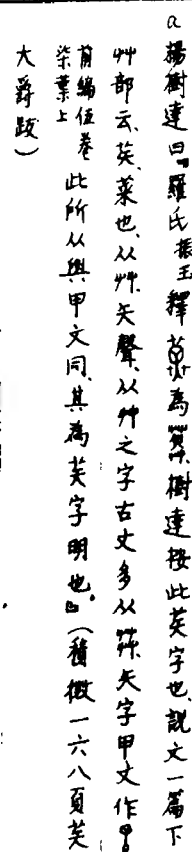 a 楊樹達曰『羅氏振玉釋為葬。樹達按此芵字也、說文一篇下
艸部云、芵、菜也、从艸、矢聲、从艸之字古文多从茻、矢字甲文作
前編伍卷柒葉上此所从與甲文同、其為芵字明也。』(積微一六八頁芵
大爵跋)